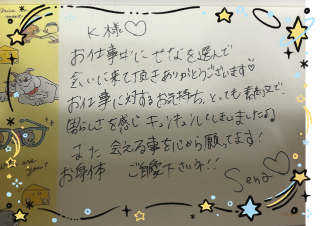 K様♡
お仕事中にせなを選んで
会いに来て頂きありがとうございます♡
お仕事に対するお気持ち、とっても素敵で、
男らしさを感じキュンキュンしてしまいましたよ
また会える事を心から願ってます!
お身体 ご自愛下さいネ!!
Sena♡
are
you?